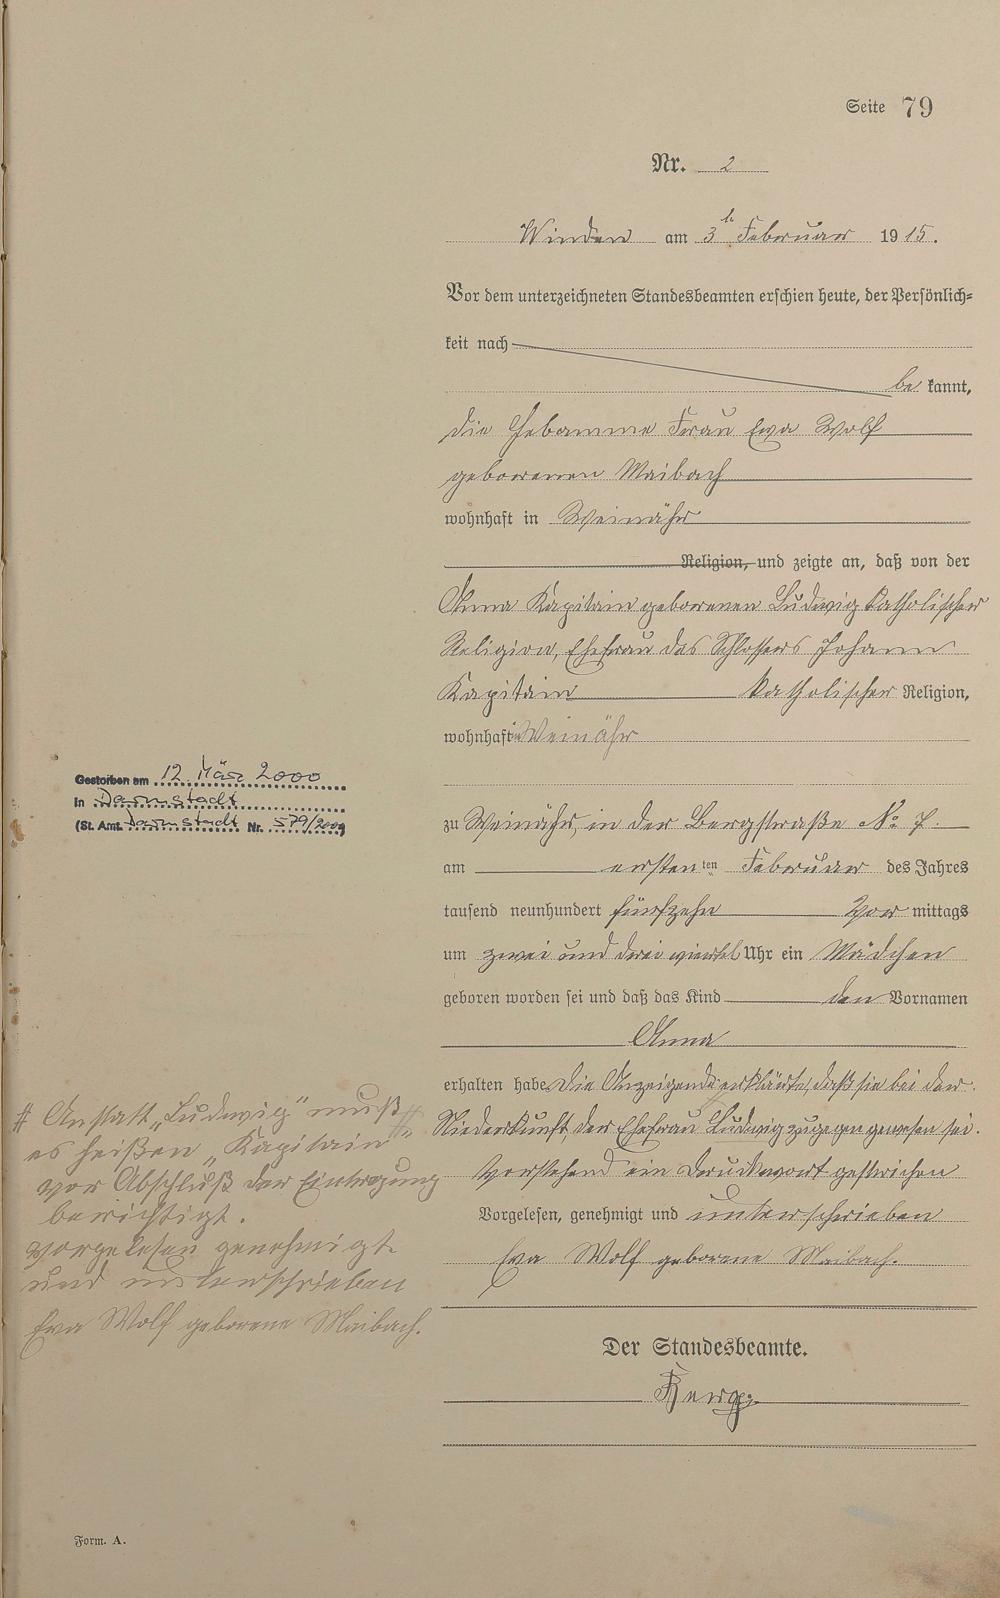 Seite 79
Nr. 2
Winden am 3t. Februar 1915.
Vor dem unterzeichneten Standesbeamten erschien heute, der Persönlich=
keit nach
be kannt,
die Hebamme Frau Eva Wolf
geborenen Maibach
wohnhaft in Weinähr
Religion, und zeigte an, daß von der
Anna Kapitain geborenen Ludwig katholischer
Religion, Ehefrau des Schlossers Johann
Kapitain katholischer Religion,
wohnhaft in Weinähr
zu Weinähr, in der Bergstraße No 7.
am ersten ten Februar des Jahres
tausend neunhundert fünfzehn Vor mittags
um zwei und drei viertel Uhr ein Mädchen
geboren worden sei und daß das Kind den Vornamen
Anna
erhalten habe. Die Anzeigende erklärte, daß sie bei der
Niederkunft, der Ehefrau Ludwig zugegen gewesen sei.
Vorstehend ein Druckwort gestrichen
Vorgelesen, genehmigt und unterschrieben
Eva Wolf geborene Maibach.
Der Standesbeamte.
Gestorben am 12. März 2000
in Darmstadt
(St. Amt Darmstadt Nr. 579/2000
# Anstatt „Ludwig" muß
es heißen „Kapitain"
vor Abschluß der Eintragung
berichtigt.
Vorgelesen genehmigt
und unterschrieben
Eva Wolf geborene Maibach.
Form. A.